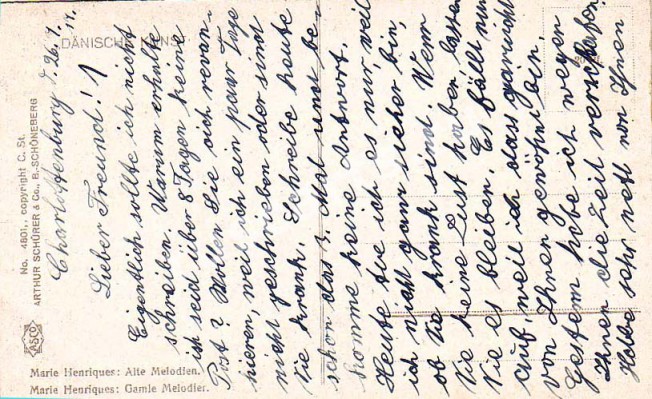 DÄNISCHE KUNST
No. 4801., copyright C. St.
ARTHUR SCHÜRER & Co., B.-SCHÖNEBERG
ASCO
Marie Henriques: Alte Melodien.
Marie Henriques: Gamle Melodier.
Charlottenburg d. 26.9.
Lieber Freund! 1
Eigentlich sollte ich nicht
schreiben. Warum erhalte
ich seid über 8 Tagen keine
Post? Wollen Sie sich revan-
hieren, weil ich ein paar Tage
nicht geschrieben oder sind
Sie krank. Schreibe heute
schon das 3. Mal und be-
komme keine Antwort.
Heute tue ich es nur, weil
ich nicht ganz sicher bin,
ob Sie krank sind. Wenn
Sie keine Lust haben lassen
Sie es bleiben. Es fällt mir
auf, weil ich dass garnicht
von Ihnen gewöhnt bin.
Gestern habe ich wegen
Ihnen die Zeit
Habe sehr nett von Ihnen